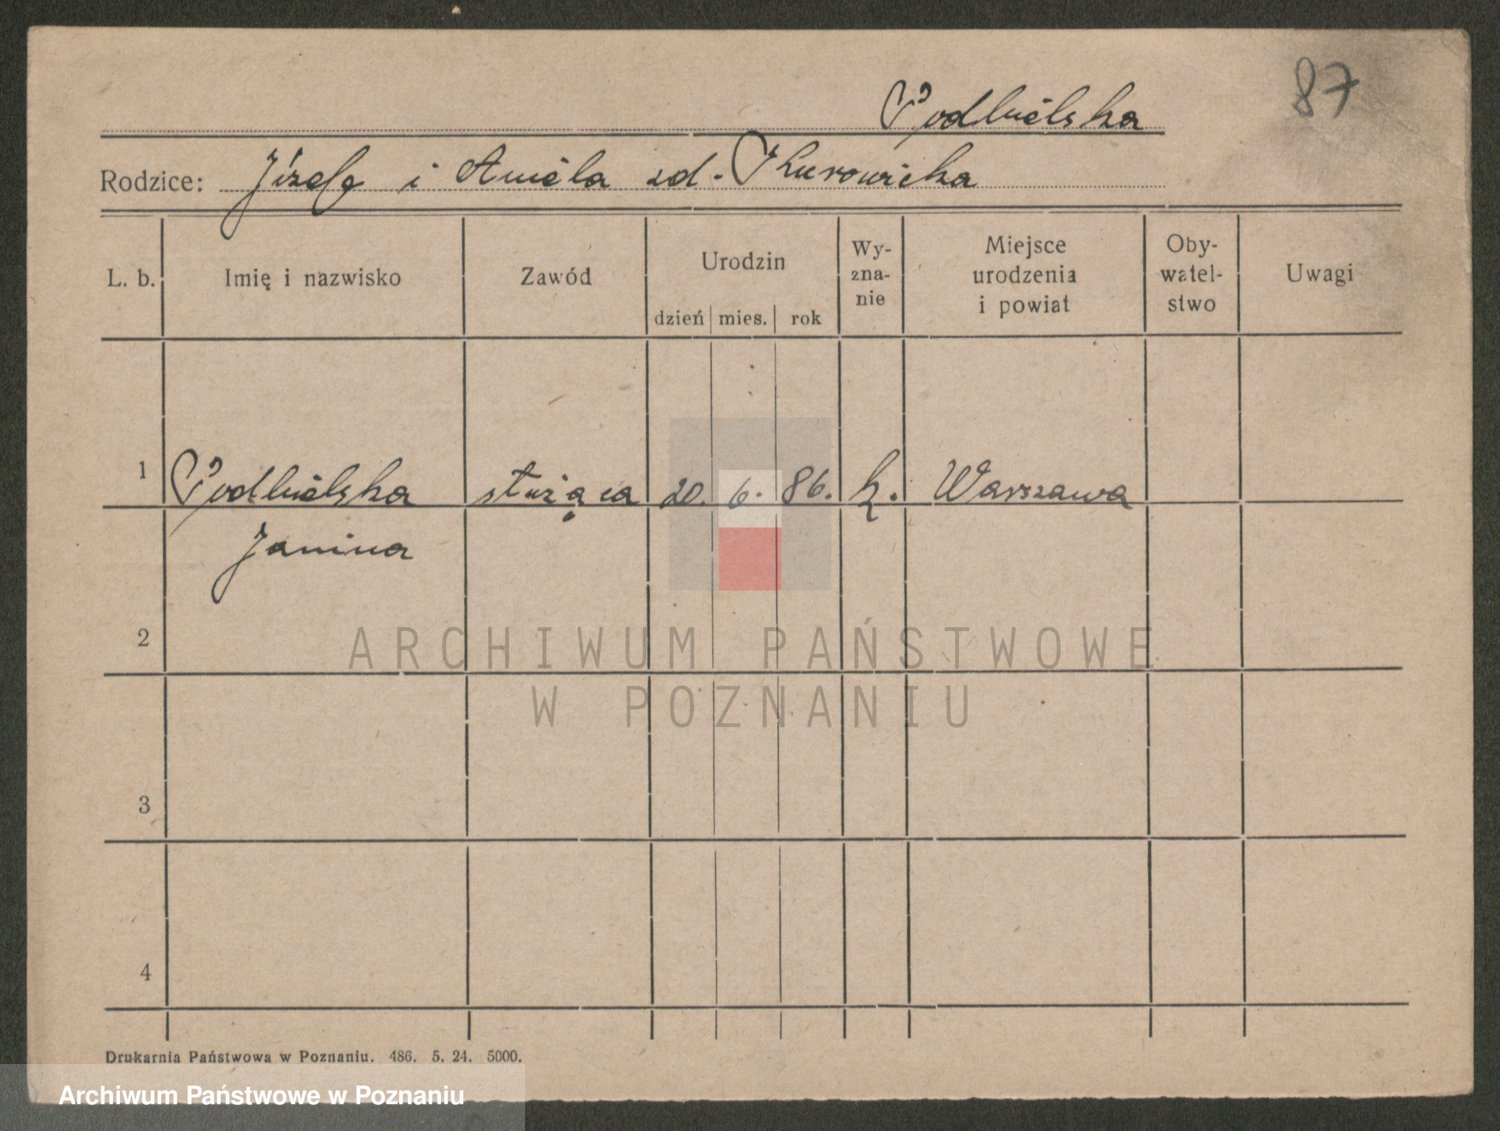 87
Podbielska
Rodzice: Józefa i Aniela zd. Kurowicka
L. b. Imię i nazwisko Zawód Urodzin dzień mies. rok Wy-zna-nie Miejsce urodzenia i powiat Oby-watel-stwo Uwagi
1 Podbielska służąca 20. 6. 86. k. Warszawa
Janina
2
ARCHIWUM PAŃSTWOWE
W POZNANIU
3
4
Drukarnia Państwowa w Poznaniu. 486. 5. 24. 5000.
Archiwum Państwowe w Poznaniu